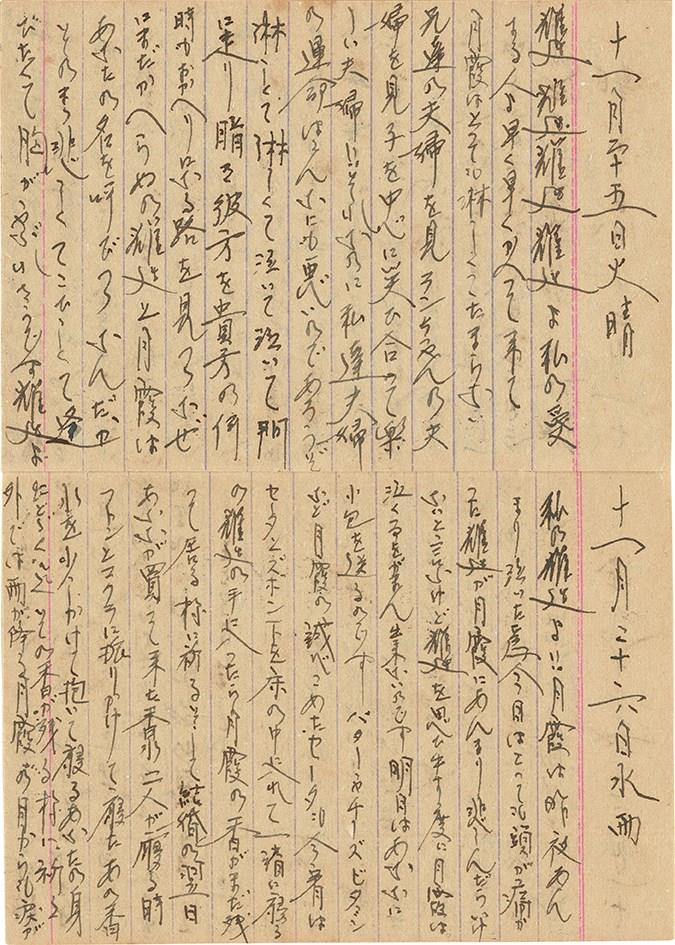 十一月二十五日火 晴
雄造 雄造 雄造 雄造よ 私の愛
する人よ早く早くかへって来て
月霞はとても淋しくってたまらない
兄達の夫婦を見 さんの夫
婦を見 子を中心に笑ひ合って楽
しい夫婦!!それなのに私達夫婦
の運命はこんなにも悪いのであろうぞ
淋しくて淋しくて泣いて泣いて
に走り 彼方を貴方の何
時かかへり来る路を見つゝなぜ
にまだかへらぬの雄造と月霞は
あなたの名を呼びつゝ
悲しくてこひしくて逢
ひたくて胸が さうです雄造よ
十一月二十六日水 雨
私の雄造よ!!月霞は昨夜あん
まり泣いた為今日はとっても頭が痛か
った雄造が月霞にあんまり悲しんだらいけ
ないと言ふけど雄造を思ひ出す度に月霞は
泣くのをがまん出来ないのです 明日はあなたに
小包を送るのです バターチーズビタミン
など月霞の誠心こめたセーターも今着は
セーターとズボンシトを床の中に入れて 寝る
の雄造の手に入ったら月霞の香がまだ残
って居る様に祈るそして結婚の翌日
あなたが買って来た香水二人が寝る時
フトンとマクラに振りかけて寝たあの香
水を少しかけて抱いて寝るあなたの身
にとどく迄 の香が残る様に祈る
外では雨が降る月霞の目からも涙が